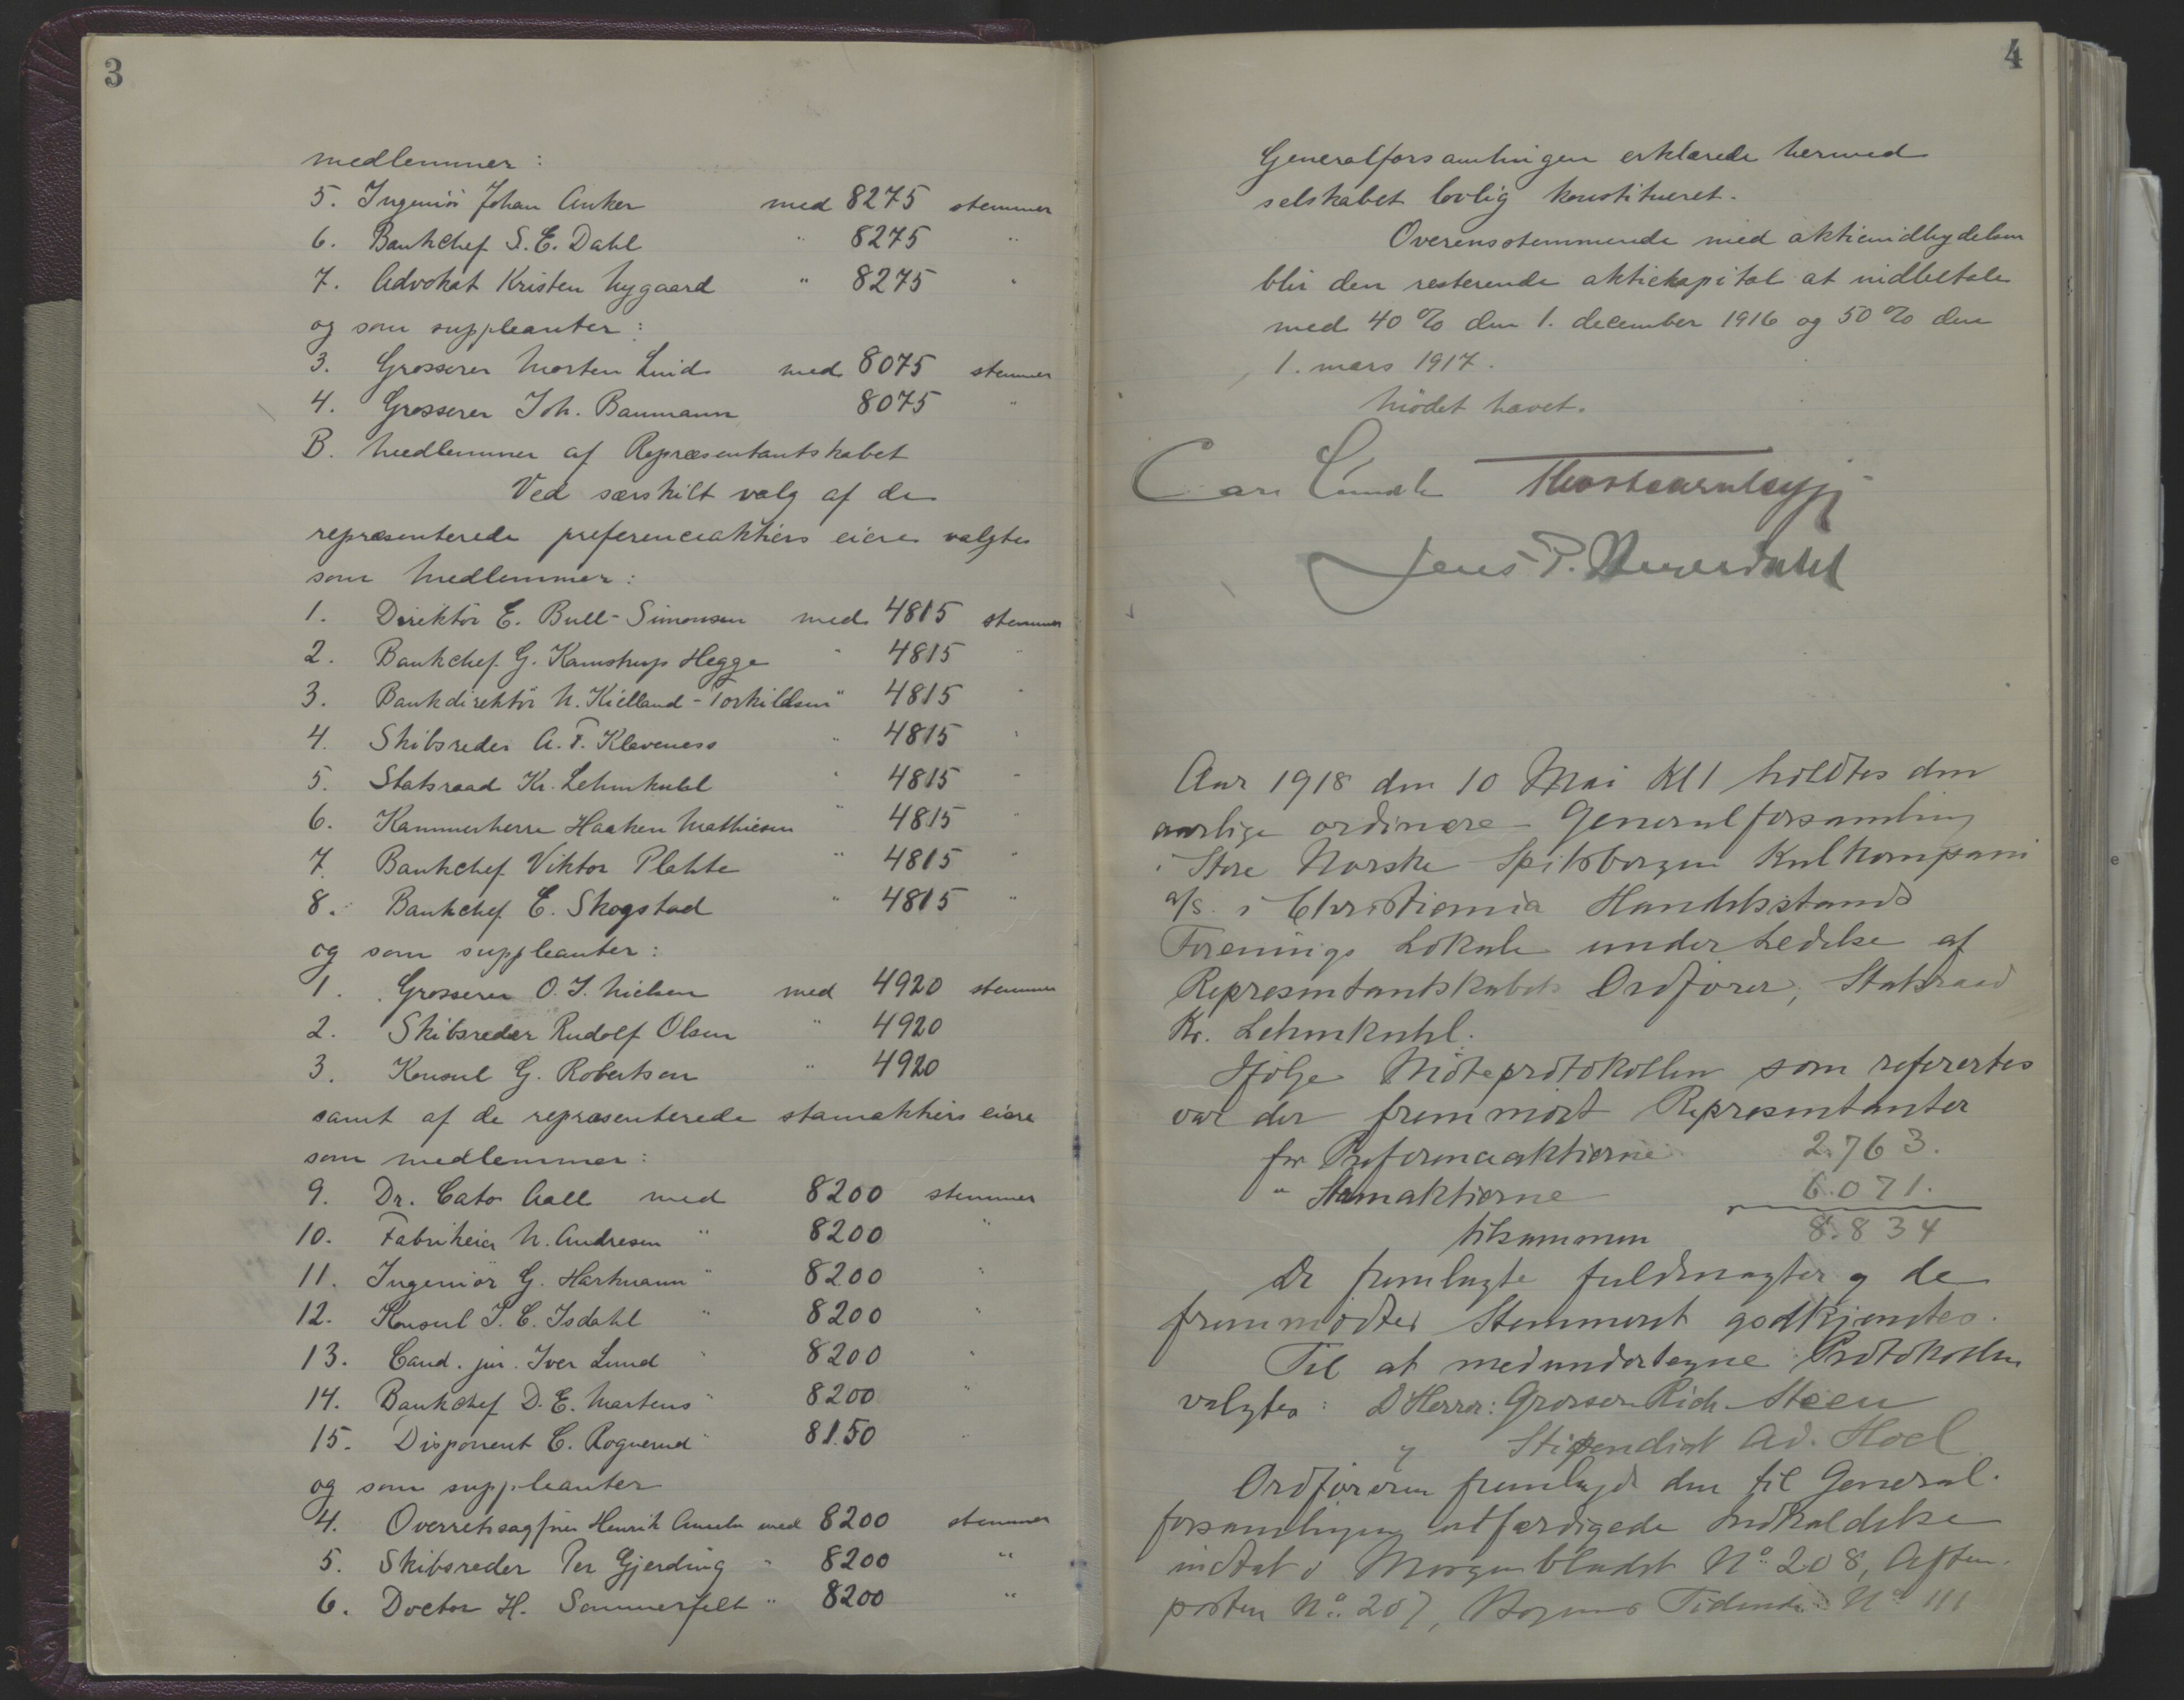 3
medlemmer:
5. Ingeniör Johan Anker med 8275 stemmer
6. Bankchef S. E. Dahl " 8275 "
7. Advokat Kristen Nygaard " 8275 "
og som suppleanter:
3. Grosserer Morten Lind med 8075 stemmer
4. Grosserer Joh. Baumann 8075 "
B. Medlemmer af Repræsentantskabet
Ved særskilt valg af de
repræsenterede preferenceaktiers eiere valgtes
som Medlemmer:
1. Direktör E. Bull-Simonsen med 4815 stemmer
2. Bankchef G. Kamstrup Hegge " 4815 "
3. Bankdirektör N. Kielland-Torkildsen " 4815 "
4. Skibsreder A. F. Klaveness " 4815 "
5. Statsraad Kr. Lehmkuhl " 4815 "
6. Kammerherre Haaken Mathiesen " 4815 "
7. Bankchef Viktor Plahte " 4815 "
8. Bankchef E. Skogstad " 4815 "
og som suppleanter:
1. Grosserer O. J. Nielsen med 4920 stemmer
2. Skibsreder Rudolf Olsen " 4920
3. Konsul G. Robertson " 4920
samt af de repræsenterede stamaktiers eiere
som medlemmer:
9. Dr. Cato Aall med 8200 stemmer
10. Fabrikeier N. Andresen " 8200 "
11. Ingeniör G. Hartmann " 8200 "
12. Konsul I. C. Isdahl " 8200 "
13. Cand. jur. Iver Lund " 8200 "
14. Bankchef D. E. Martens " 8200 "
15. Disponent C. Rognerud " 8150 "
og som suppleanter
4. Overretssagfører Henrik Ameln med 8200 stemmer
5. Skibsreder Per Gjerding " 8200 "
6. Doctor H. Sommerfelt " 8200 "
4
Generalforsamlingen erklærede hermed
selskabet lovlig konstitueret.
Overensstemmende med aktieindbydelsen
blir den resterende aktiekapital at indbetale
med 40 % den 1. december 1916 og 50 % den
1. mars 1917.
Mödet hævet.
Carl Lundh
Jens P.
Aar 1918 den 10 Mai Kl 1 holdtes den
aarlige ordinære Generalforsamling
i Store Norske Spitsbergen Kulkompani
a/s. i Christiania Handelsstands
Forenings Lokale under Ledelse af
Representantskabets Ordfører, Statsraad
Kr. Lehmkuhl.
Ifølge Møteprotokollen som refertes
var der fremmøt Representanter
for Preferenceaktierne 2.763.
" Stamaktierne 6.071.
tilsammen 8.834
De fremlagte fuldmagter og de
fremmødtes Stemmeret godkjendtes.
Til at medundertegne Protokollen
valgtes: D'Herrer: Grosserer Rich. Steen
og Stipendiat Ad. Hoel
Ordføreren fremlagde den til General-
forsamlingen utfærdigede Indkaldelse
indtat i Morgenbladet No. 208, Aften-
posten No. 207, Bergens Tidende No 111